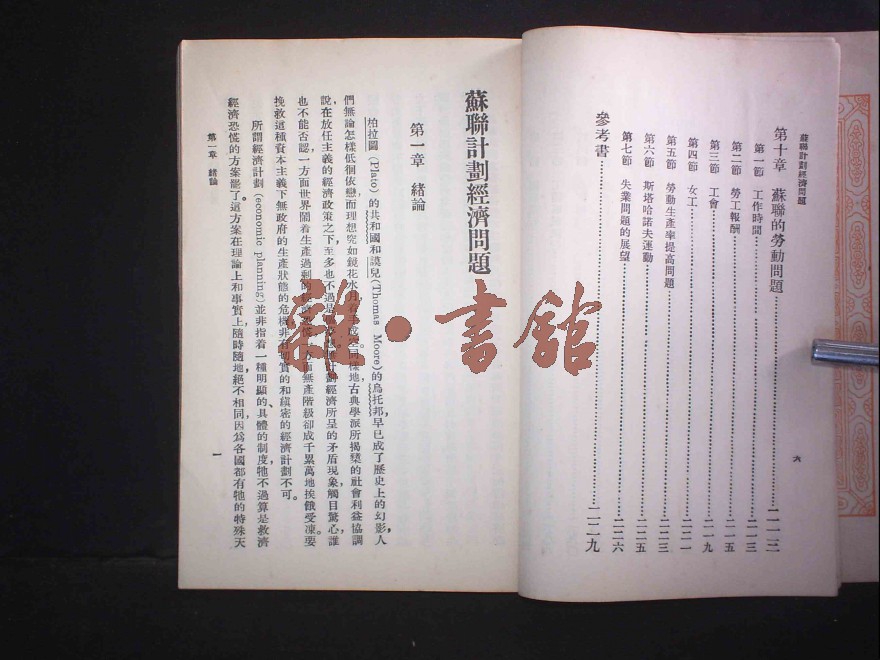 蘇聯計劃經濟問題
第十章 蘇聯的勞動問題……二一三
第一節 工作時間……二一三
第二節 勞工報酬……二一五
第三節 工會……二一九
第四節 女工……二二一
第五節 勞動生產率提高問題……二二三
第六節 斯塔哈諾夫運動……二二五
第七節 失業問題的展望……二二六
參考書……二二九
六
蘇聯計劃經濟問題
第一章 緒論
柏拉圖(Plato)的共和國和謨兒(Thomas Moore)的烏托邦,早已成了歷史上的幻影,人
們無論怎樣低徊依戀,而理想究如鏡花水月,着手成空。同樣地古典學派所揭櫫的社會利益協調
說,在放任主義的經濟政策之下,至多也不過是
計劃經濟所呈的矛盾現象,觸目驚心,誰
也不能否認,一方面世界鬧着生產過剩的經濟恐慌,一方面無產階級卻成千累萬地挨餓受凍。要
挽救這種資本主義下無政府的生產狀態的危機,非有切實的和縝密的經濟計劃不可。
所謂經濟計劃(economic planning)並非指着一種明顯的、具體的制度,牠不過算是救濟
經濟恐慌的方案罷了。這方案在理論上和事實上,隨時隨地絕不相同,因爲各國都有牠的特殊天
第一章 緒論
一
雜·書館